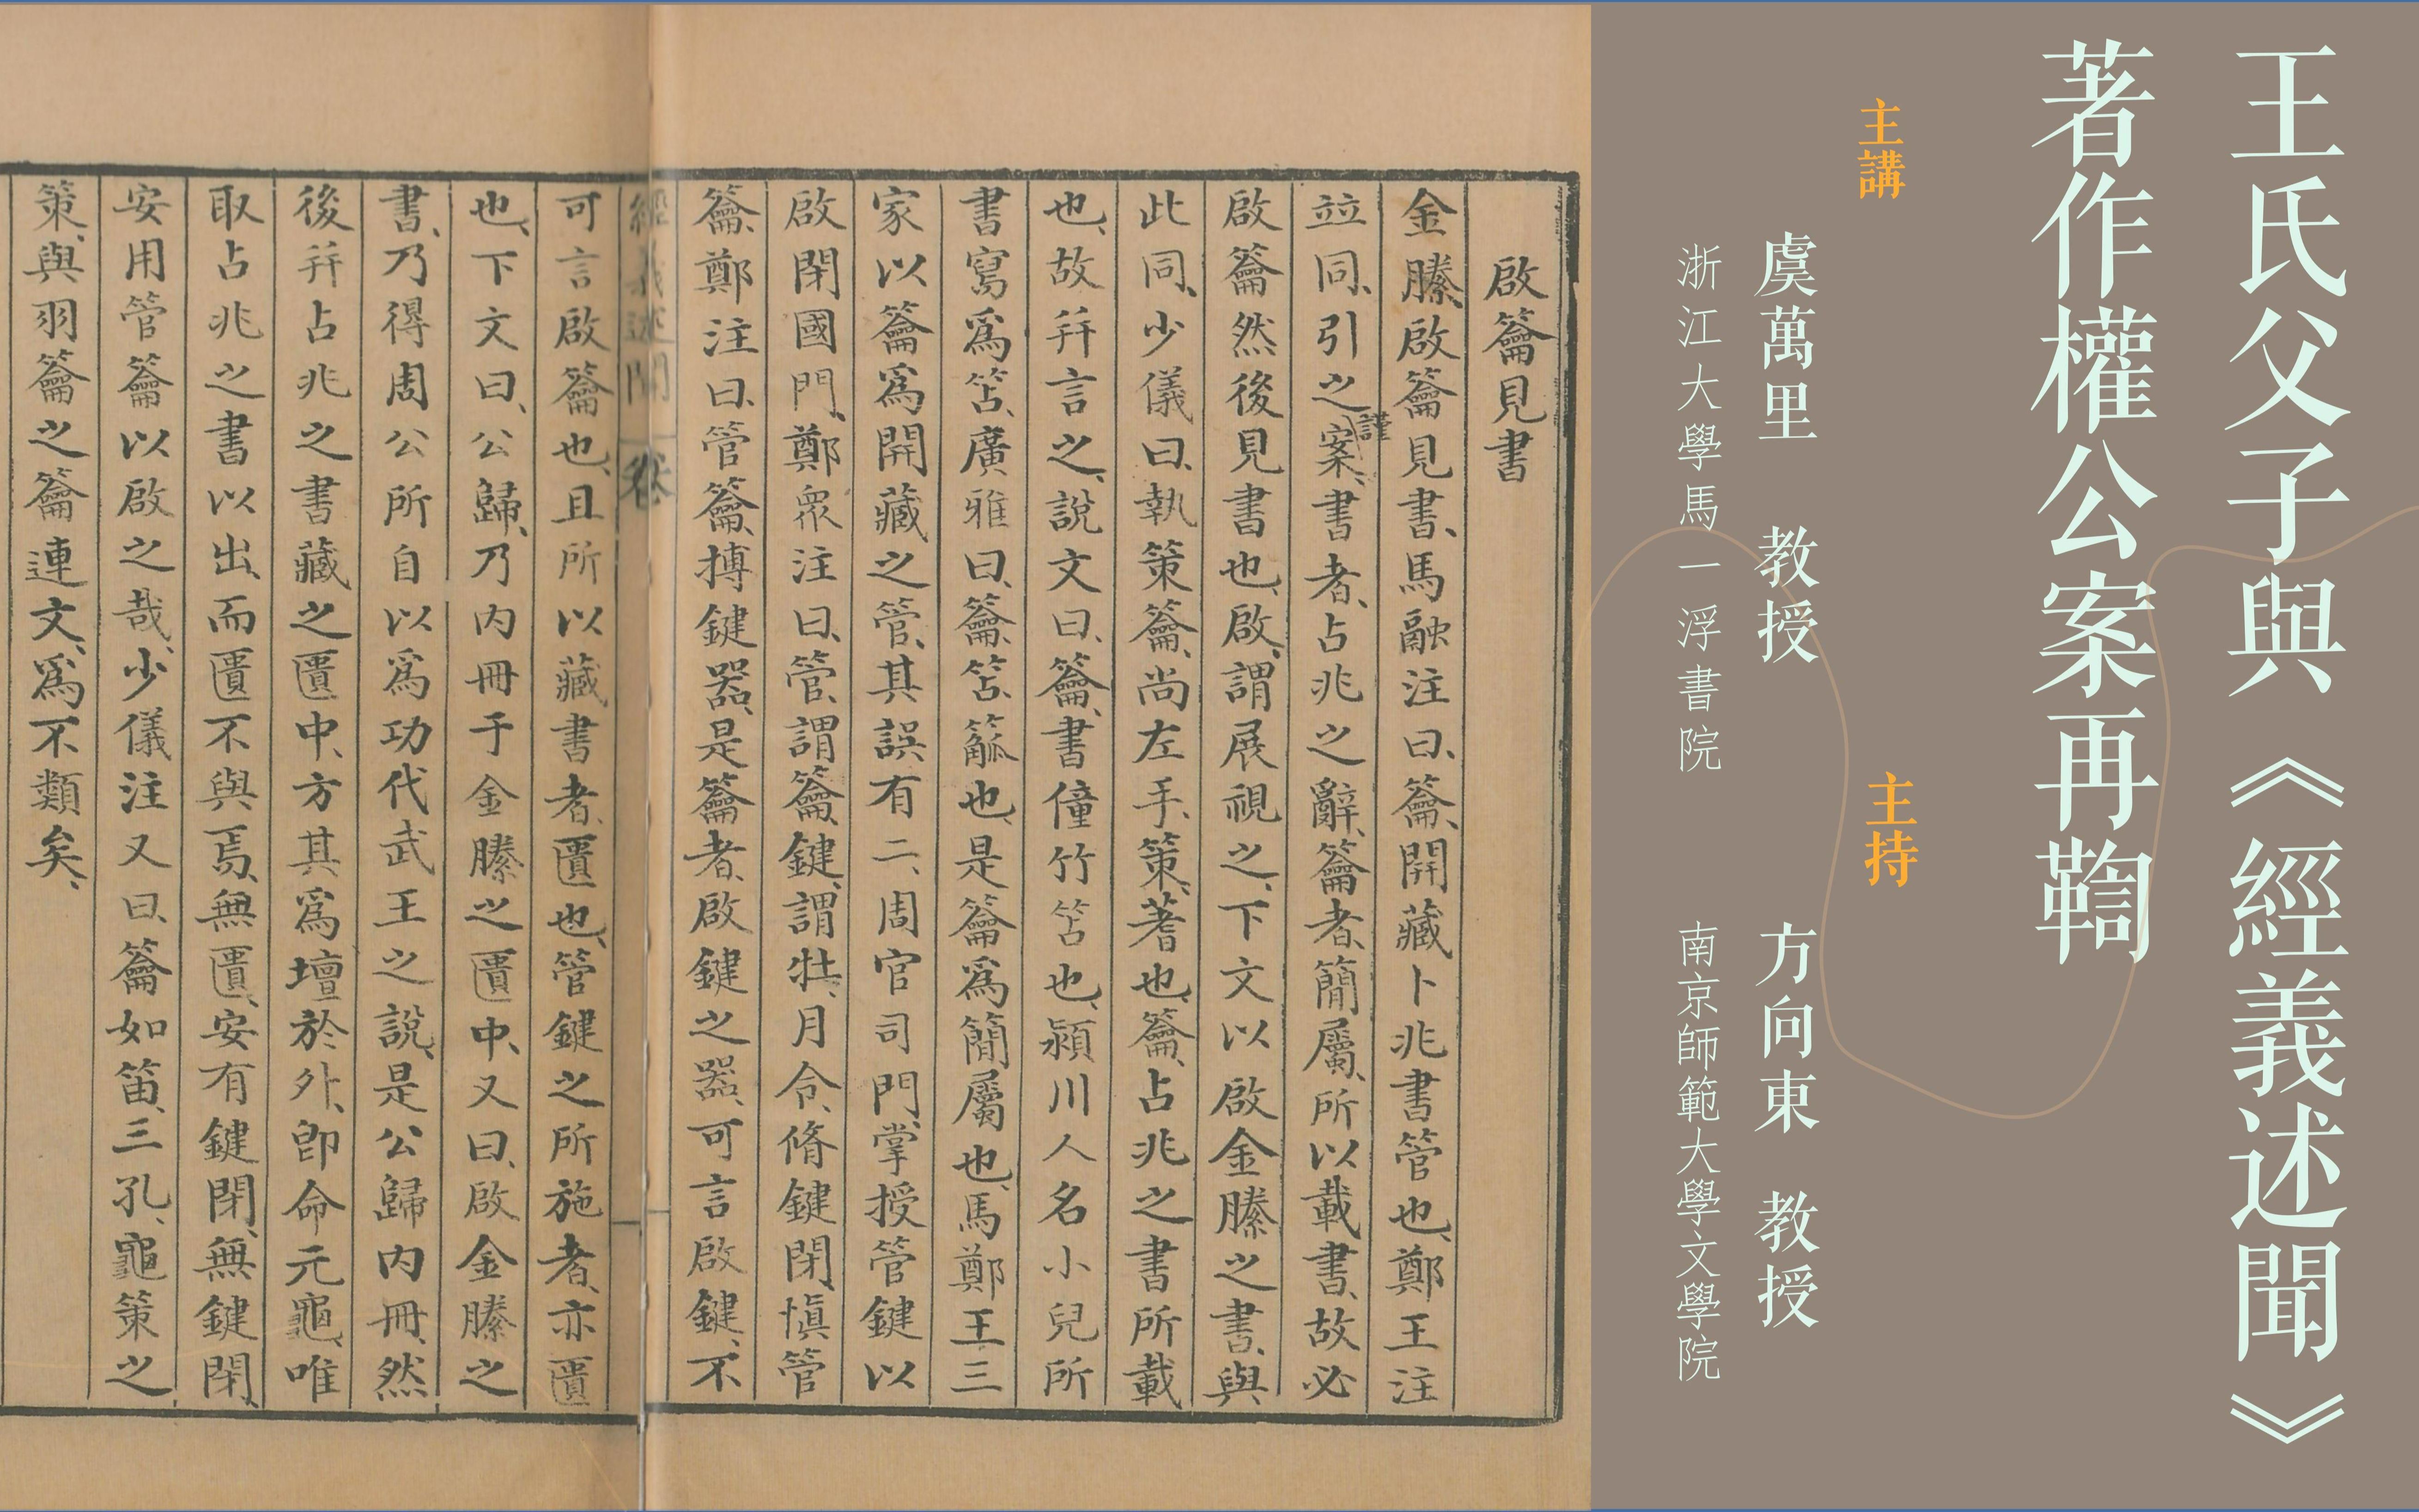 王氏父子與《經義述聞》
著作權公案再鞫
主講
虞萬里 教授
浙江大學馬一浮書院
主持
方向東 教授
南京師範大學文學院
啟籥見書
金縢、啟籥見書、馬融注曰、籥、開藏卜兆書管也、鄭王注
竝同、引之謹案、書者、占兆之辭、籥者、簡屬、所以載書、故必
啟籥然後見書也、啟、謂展視之、下文以啟金縢之書、與
此同、少儀曰、執策籥、尚左手、策、蓍也、籥、占兆之書所載
也、故幷言之、說文曰、籥、書僮竹笘也、潁川人名小兒所
書寫爲笘、廣雅曰、籥、笘、籲也、是籥爲簡屬也、馬鄭王三
家以籥爲開藏之管、其誤有二、周官司門、掌授管鍵以
啟閉國門、鄭衆注曰、管、謂籥、鍵、謂牡、月令、脩鍵閉、愼管
籥、鄭注曰、管籥、搏鍵器、是籥者、啟鍵之器、可言啟鍵、不
經義述聞 卷
可言啟籥也、且所以藏書者、匱也、管鍵之所施者、亦匱
也、下文曰、公歸、乃内冊于金縢之匱中、又曰、啟金縢之
書、乃得周公所自以爲功代武王之說、是公歸内冊、然
後幷占兆之書藏之匱中、方其爲壇於外、卽命元龜、唯
取占兆之書以出、而匱不與焉、無匱、安有鍵閉、無鍵閉、
安用管籥以啟之哉、少儀注又曰、籥如笛、三孔、龜策之
策、與羽籥之籥連文、爲不類矣、